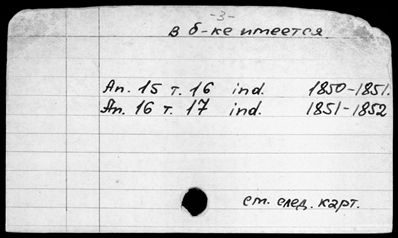 -3-
в б-ке имеется
An. 15 т. 16 ind. 1850-1851.
An. 16 т. 17 ind. 1851-1852
см. след. карт.